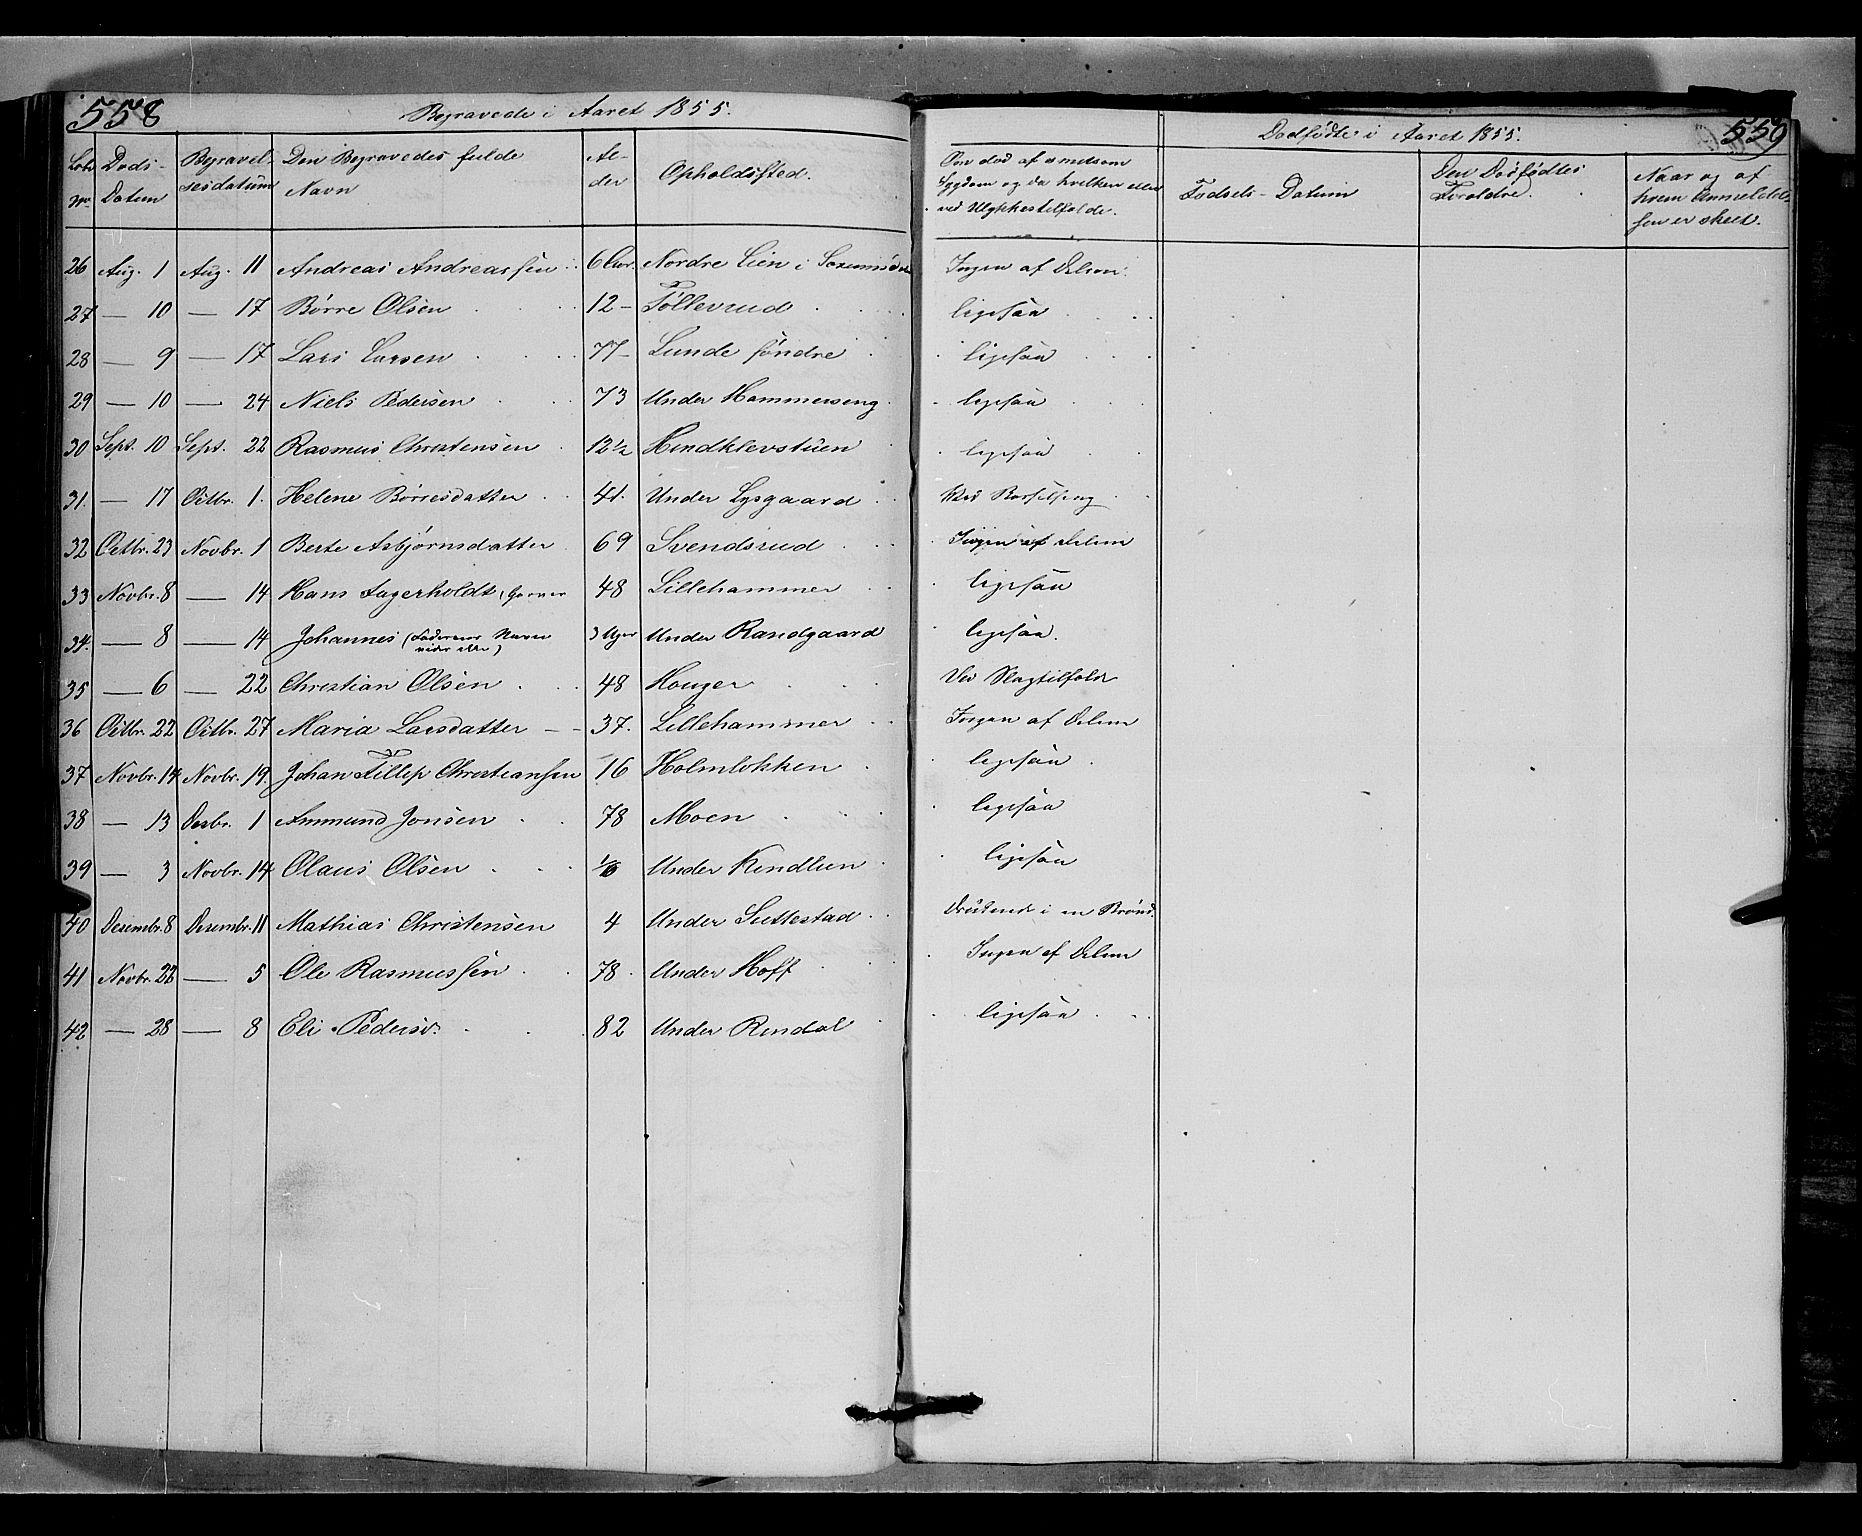 558
Begravede i Aaret 1855.
Løbe No. Døds-Datum Begravelsesdatum Den Begravedes fulde Navn Alder Opholdssted.
26 Aug. 1 Aug. 11 Andreas Andreassen 6 Nordre Lien i
27 — 10 — 17 Børre Olsen 12 — Tøllevrud
28 — 9 — 17 Lars Larsen 77 — Lunde søndre
29 — 10 — 24 Niels Pedersen 73 Under Hammerseng
30 Sept. 10 Sept. 22 Rasmus Christensen 12½ Hindklevstuen
31. — 17 Octbr. 1. Helene Børresdatter 41. Under Lysgaard
32 Octbr. 23 Novbr. 1 Berte Asbjørnsdatter 69 Svendsrud
33 Novbr. 8 — 14 Hans Fagerholdt (Garver 48 Lillehammer
34. — 8 — 14 Johannes (Faderens Navn vides ikke) 3 Uger Under Randgaard
35 — 6 — 22 Christian Olsen 48 Houger
36 Octbr. 22 Octbr. 27 Maria Larsdatter — 37. Lillehammer
37 Novbr. 14 Novbr. 19. Johan Fillip Christiansen 16 Holmløkken
38 — 13 Desbr. 1 Ammund Jonsen 78 Moen
39 — 3 Novbr. 14 Olaus Olsen Under Kindlien
40 Desembr. 8 Desembr. 11 Mathias Christensen 4 Under Suttestad
41 Novbr. 22 — 5 Ole Rasmussen 78. Under Hoff
42 — 28 — 8 Eli Pedersd. 82 Under Rindal
559
Dødfødte i Aaret 1855.
Om død af smitsom Sygdom og da hvilken eller ved Ulykkestilfælde.
Fødsels-Datum
Den Dødfødtes Foreldre.
Naar og af hvem Anmeldelsen er skeet.
Ingen af Delene
ligesaa
ligesaa
ligesaa
ligesaa
Ved Barselseng
Ingen af Delene
ligesaa
ligesaa.
Ved Slagtilfælde
Ingen af Delene
ligesaa
ligesaa
ligesaa
Druknede i en Brønd.
Ingen af Delene
ligesaa